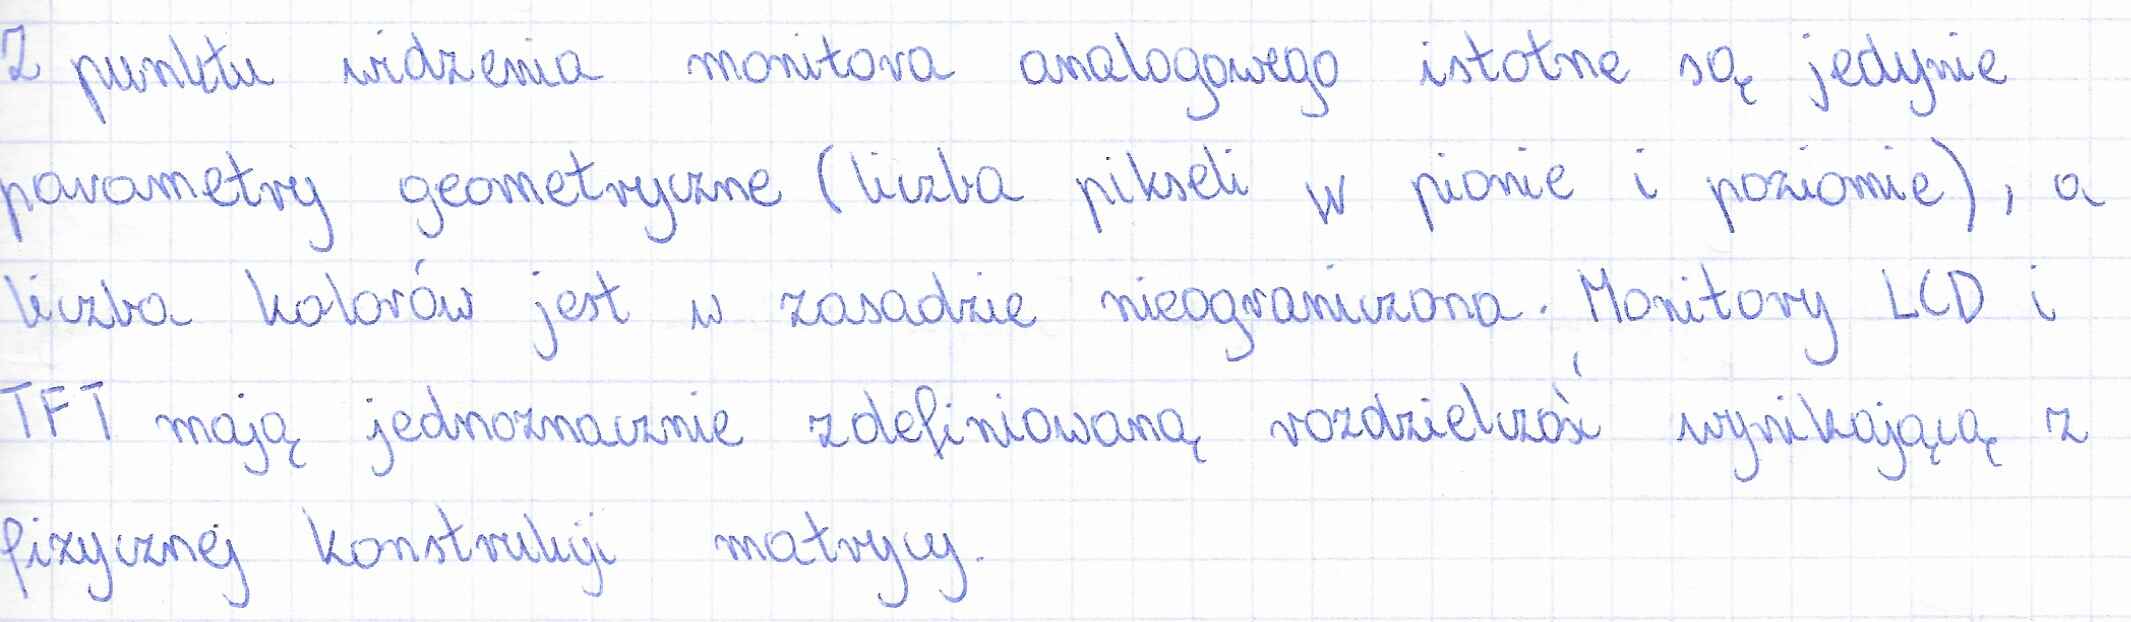 Z punktu widzenia monitora analogowego istotne są jedynie
parametry geometryczne (liczba pikseli w pionie i poziomie), a
liczba kolorów jest w zasadzie nieograniczona. Monitory LCD i
TFT mają jednoznacznie zdefiniowaną rozdzielczość wynikającą z
fizycznej konstrukcji matrycy.